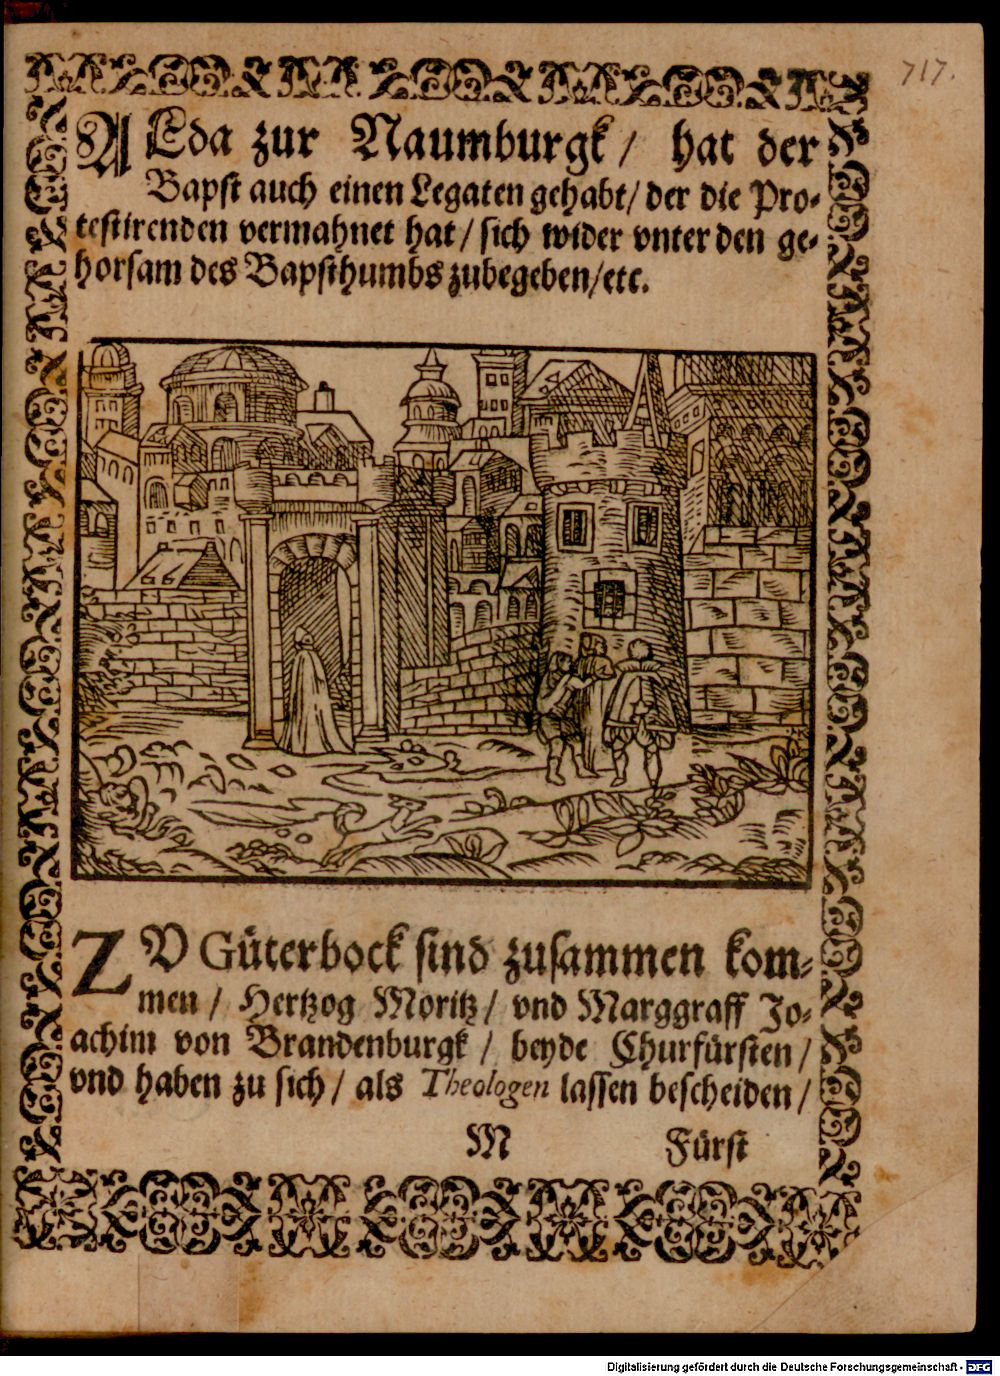 717.
ALda zur Naumburgk / hat der
Bapst auch einen Legaten gehabt / der die Pro-
testirenden vermahnet hat / sich wider vnter den ge-
horsam des Bapsthumbs zubegeben / etc.
ZV Güterbock sind zusammen kom-
men / Hertzog Moritz / vnd Marggraff Jo-
achim von Brandenburgk / beyde Churfürsten /
vnd haben zu sich / als Theologen lassen bescheiden /
M Fürst
Digitalisierung gefördert durch die Deutsche Forschungsgemeinschaft - DFG